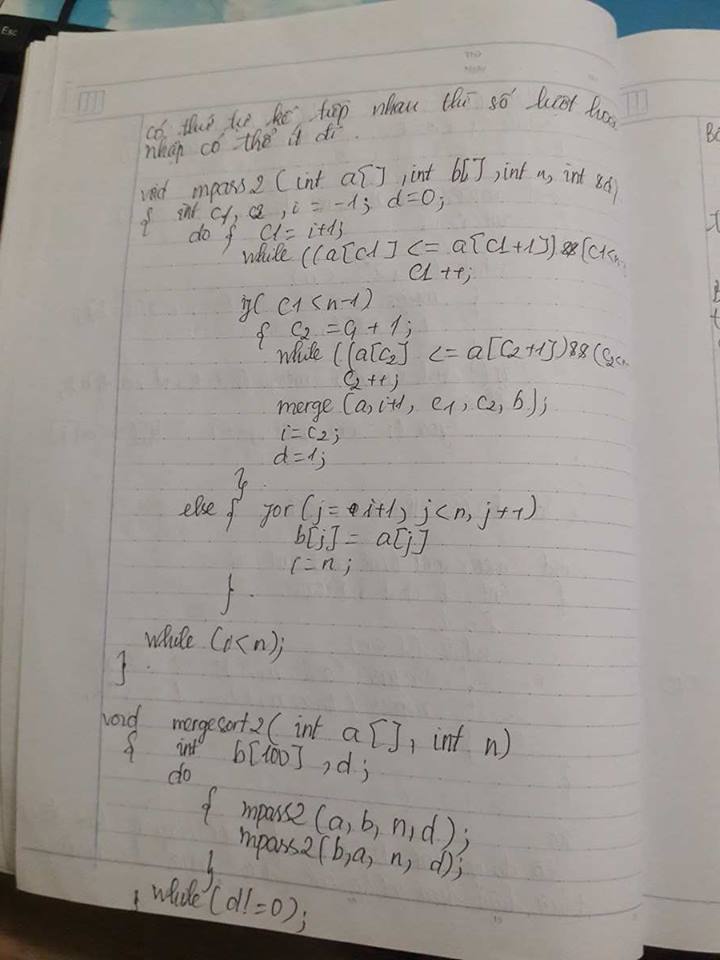 có thứ tự kế tiếp nhau thì số lượt hoá
nhập có thể ít đi.
void mpass2 (int a[], int b[], int n, int &d)
{ int c1, c2, i = -1; d=0;
do { c1 = i+1;
while ((a[c1] <= a[c1+1]) && (c1<n
c1++;
if( c1<n-1)
{ c2 = c1 + 1;
while ((a[c2] <= a[c2+1]) && (c2<n
c2++;
merge (a, i+1, c1, c2, b);
i=c2;
d=1;
}
else { for (j= i+1; j<n, j++)
b[j] = a[j]
i=n;
}.
while (i<n);
}.
void mergesort2( int a[], int n)
{ int b[100], d;
do
{ mpass2 (a, b, n, d);
mpass2(b, a, n, d);
}
while (d!=0);
Esc